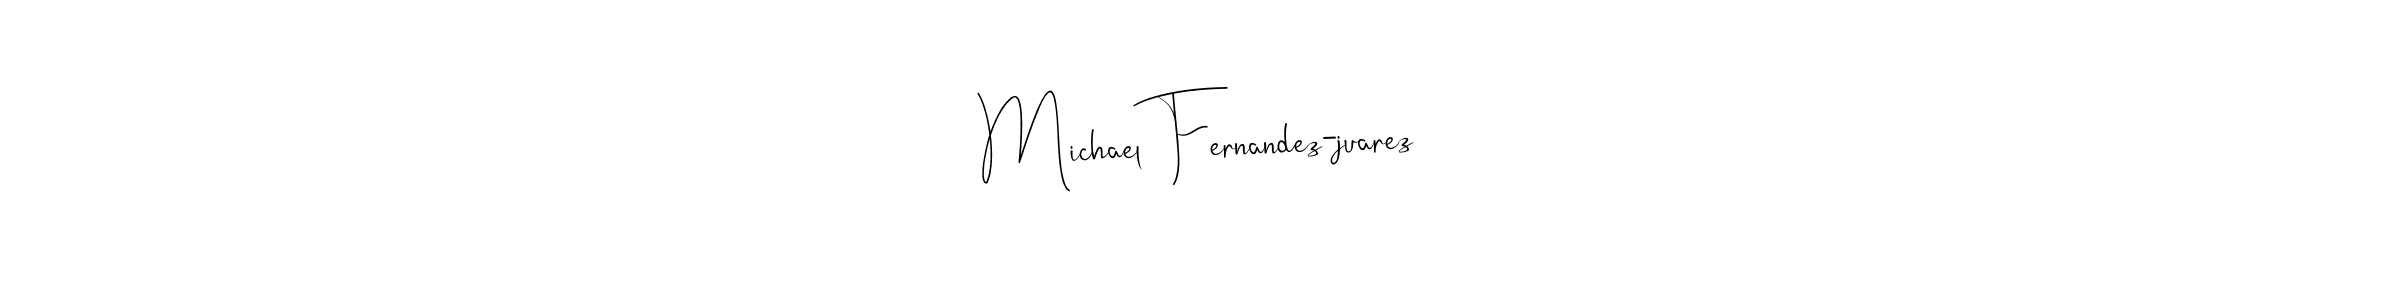 Michael Fernandez-juarez